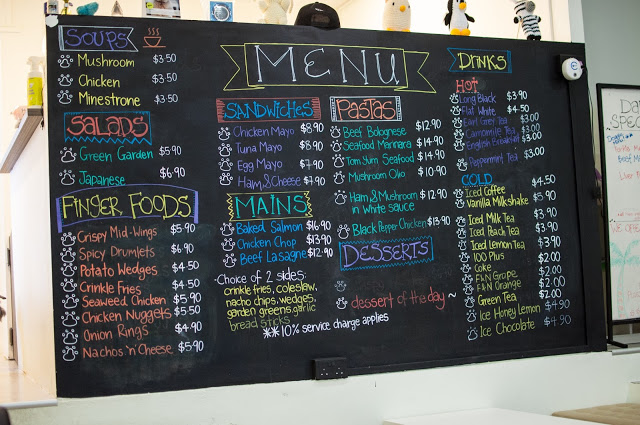 SOUPS
Mushroom $3.50
Chicken $3.50
Minestrone $3.50
SALADS
Green Garden $5.90
Japanese $6.90
FINGER FOODS
Crispy Mid-Wings $5.90
Spicy Drumlets $6.90
Potato Wedges $4.50
Crinkle Fries $4.50
Seaweed Chicken $5.90
Chicken Nuggets $5.50
Onion Rings $4.90
Nachos 'n' Cheese $5.90
MENU
SANDWICHES
Chicken Mayo $8.90
Tuna Mayo $8.90
Egg Mayo $7.90
Ham & Cheese $7.90
MAINS
Baked Salmon $16.90
Chicken Chop $13.90
Beef Lasagne $12.90
-Choice of 2 sides:
crinkle fries, coleslaw,
nacho chips, wedges,
garden greens, garlic
bread sticks
**10% service charge applies
PASTAS
Beef Bolognese $12.90
Seafood Marinara $14.90
Tom Yum Seafood $14.90
Mushroom Olio $10.90
Ham & Mushroom $12.90
in white sauce
Black Pepper Chicken $13.90
DESSERTS
dessert of the day ~
DRINKS
HOT
Long Black $3.90
Flat White $4.50
Earl Grey Tea $3.00
Camomile Tea $3.00
English Breakfast $3.00
Peppermint Tea $3.00
COLD
Iced Coffee $4.50
Vanilla Milkshake $5.90
Iced Milk Tea $3.90
Iced Peach Tea $3.90
Iced Lemon Tea $3.90
100 Plus $2.00
Coke $2.00
F&N Grape $2.00
F&N Orange $2.00
Green Tea $2.00
Ice Honey Lemon $4.90
Ice Chocolate $4.90